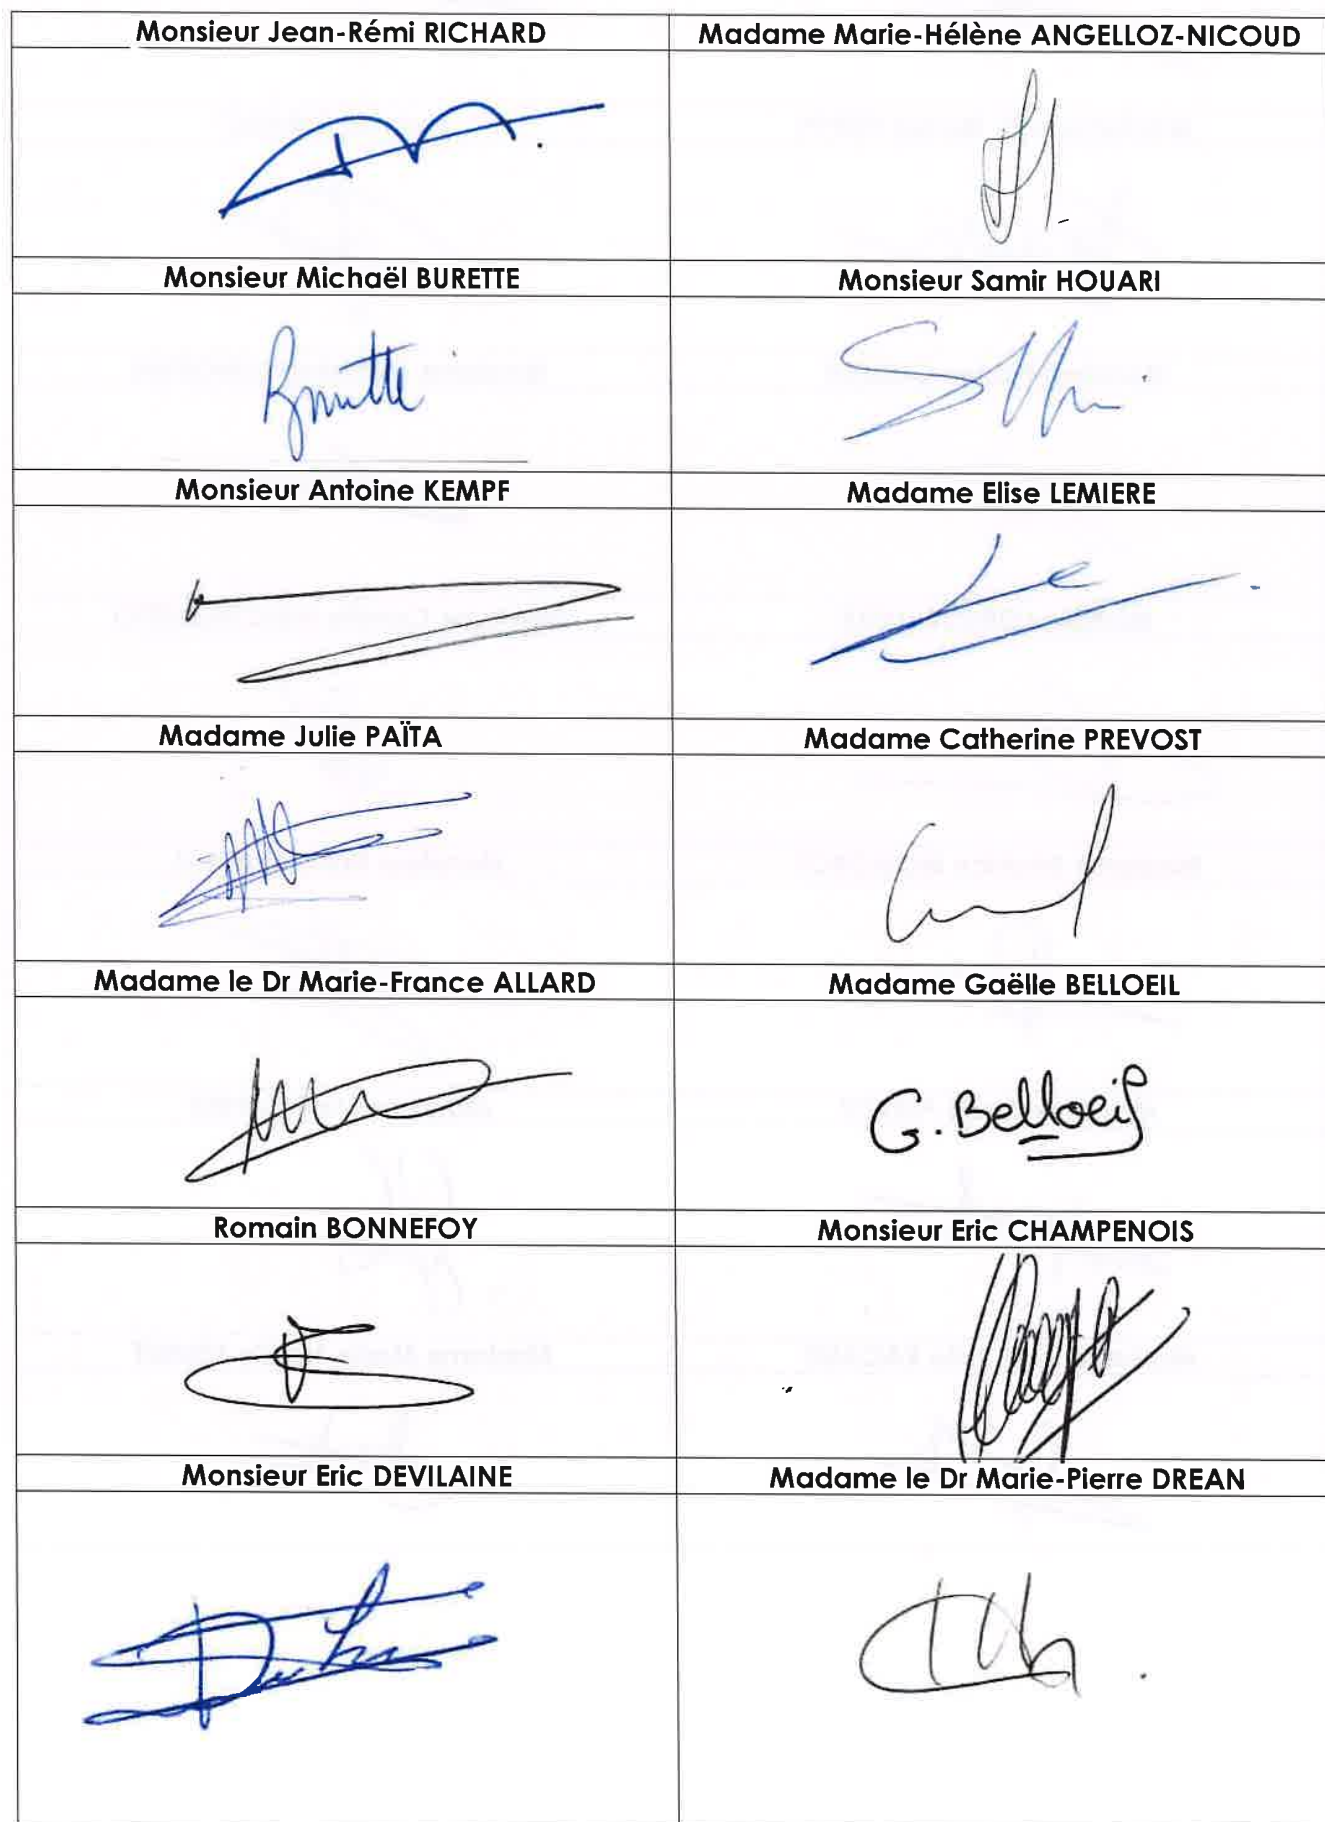 Monsieur Jean-Rémi RICHARD
Madame Marie-Hélène ANGELLOZ-NICOUD
Monsieur Michaël BURETTE
Monsieur Samir HOUARI
Burette
Monsieur Antoine KEMPF
Madame Elise LEMIERE
Madame Julie PAÏTA
Madame Catherine PREVOST
Madame le Dr Marie-France ALLARD
Madame Gaëlle BELLOEIL
G. Belloeil
Romain BONNEFOY
Monsieur Eric CHAMPENOIS
Monsieur Eric DEVILAINE
Madame le Dr Marie-Pierre DREAN